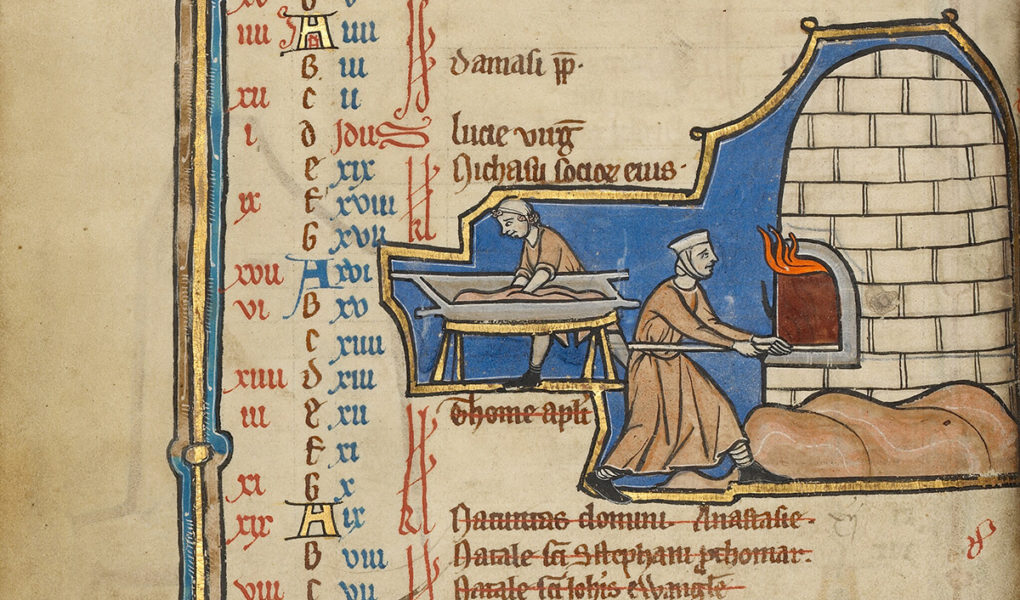 iiii A iiii
B iii damasi pp̄.
xii c ii
i d Idus lucie virḡ
e xix Nichasii socioꝝ eius.
ix f xviii
G xvii kl
xvii A xvi
vi B xv
c xiiii
xiiii d xiii
iii e xii Thome apl̄i
f xi
xi G x
xix A ix kl Natiuitas domini. Anastasie.
B viii Natale sc̄i Stephani p̄thomar.
viii c vii Natale sc̄i Ioh̄is ewangl̄e